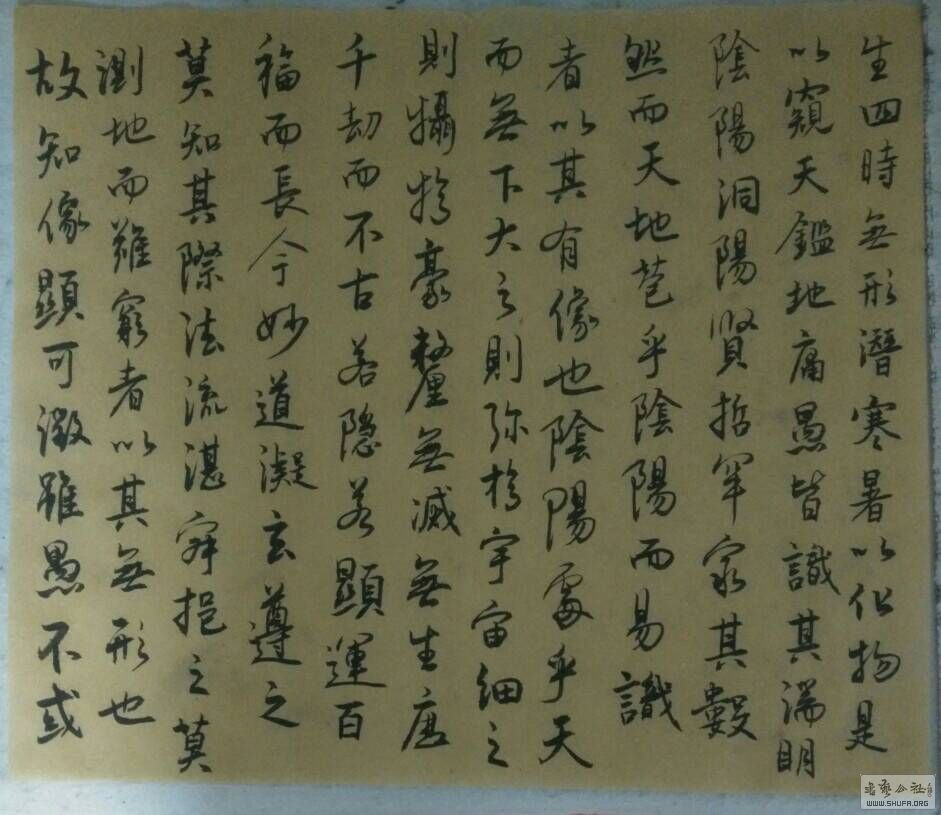 生四時無形潛寒暑以化物是
以窺天鑑地庸愚皆識其端明
陰陽洞陽賢哲罕窮其數
然而天地苞乎陰陽而易識
者以其有像也陰陽處乎天
而無下大之則弥於宇宙細之
則攝於豪釐無滅無生歷
千劫而不古若隱若顯運百
福而長今妙道凝玄遵之
莫知其際法流湛寂挹之莫
測地而難窮者以其無形也
故知像顯可徵雖愚不或
书艺公社
WWW.SHUFA.ORG